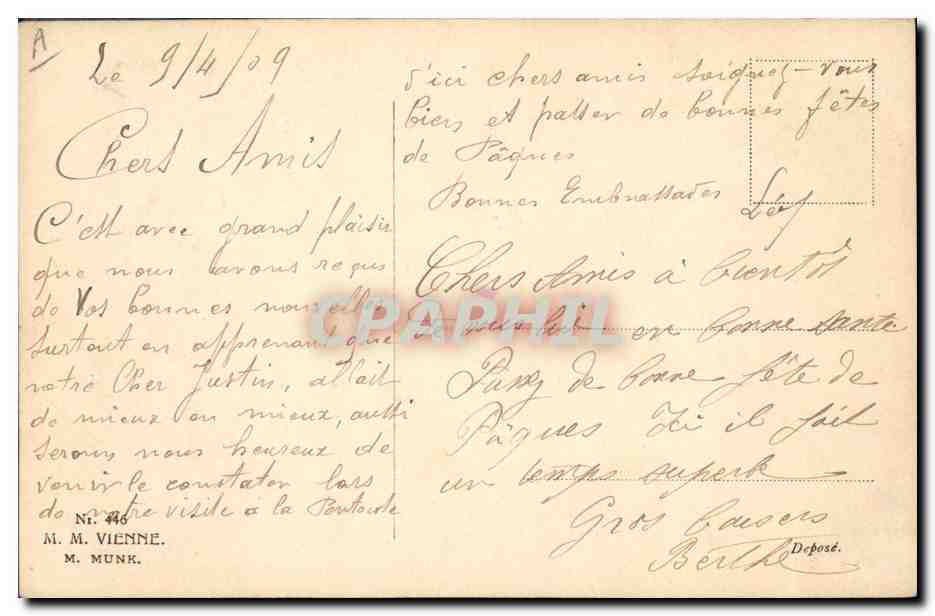 A
Le 9/4/09
Chers Amis
C'est avec grand plaisir
que nous avons reçus
de Vos bonnes nouvelles
surtout en apprenant que
notre Cher Justin, allait
de mieux en mieux, aussi
serons nous heureux de
venir le constater lors
de notre visite à la Pentecote
d'ici chers amis soignez-vous
bien et passer de bonnes fêtes
de Pâques
Bonnes Embrassades
Chers Amis à bientôt
en bonne santé
de bonne fête de
Pâques Ici il fait
un temps superbe
Gros baisers
Berthe
Nr. 446
M. M. VIENNE.
M. MUNK.
Deposé.
CPAPHIL